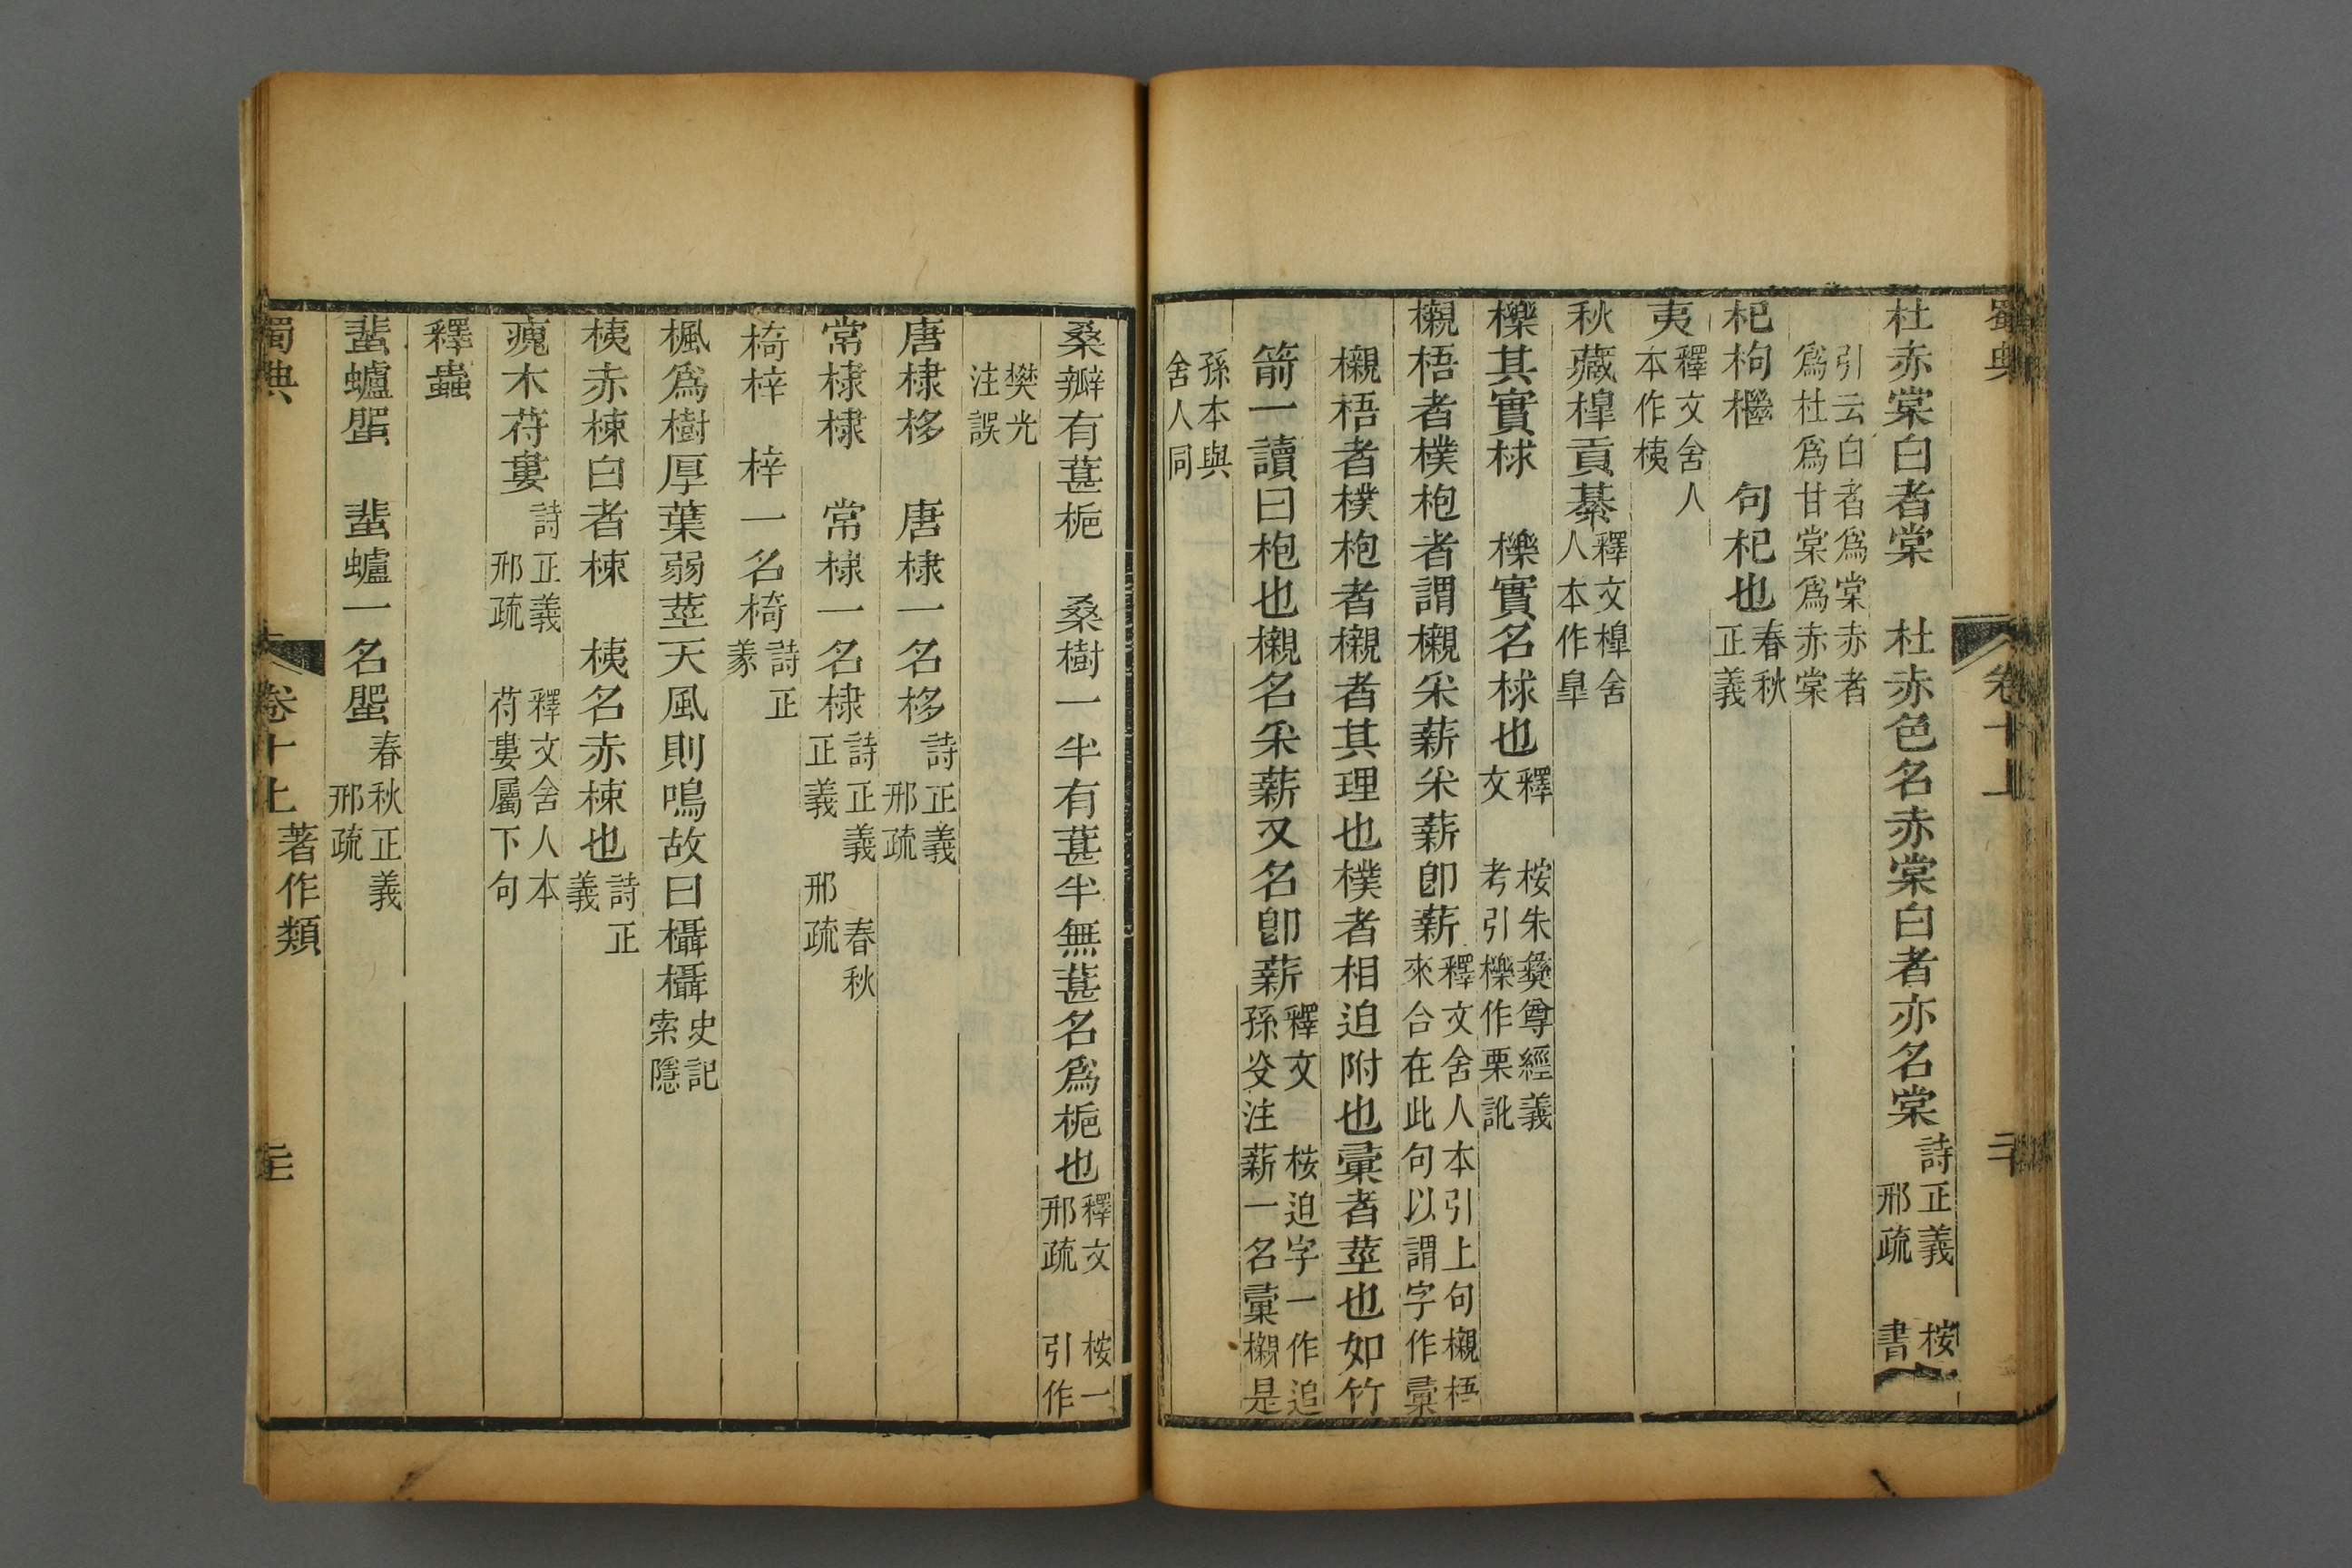 蜀典 卷十上 二十
杜赤棠白者棠 杜赤色名赤棠白者亦名棠 詩正義 邢疏 桉書
引云白者爲棠赤者爲杜爲甘棠爲赤棠
杞枸檵 句杞也 春秋正義
夷 釋文舍人本作桋
秋藏槹貢綦 釋文槹舍人本作皐
櫟其實梂 櫟實名梂也 釋文 桉朱彝尊經義考引櫟作栗訛
櫬梧者樸枹者謂櫬采薪采薪卽薪 釋文舍人本引上句櫬梧來合在此句以謂字作彙
櫬梧者樸枹者櫬者其理也樸者相迫附也彙者莖也如竹
箭一讀曰枹也櫬名采薪又名卽薪 釋文 桉迫字一作追孫炎注薪一名彙櫬是
孫本與舍人同
桑辦有葚梔 桑樹一半有葚半無葚名爲梔也 釋文邢疏 桉一引作
樊光注誤
唐棣栘 唐棣一名栘 詩正義邢疏
常棣棣 常棣一名棣 詩正義 春秋正義 邢疏
椅梓 梓一名椅 詩正義
楓爲樹厚葉弱莖天風則鳴故曰欇欇 史記索隱
桋赤棟白者棟 桋名赤棟也 詩正義
瘣木苻婁 詩正義邢疏 釋文舍人本苻婁屬下句
釋蟲
蜚蠦蜰 蜚蠦一名蜰 春秋正義邢疏
蜀典 卷十上 著作類 二十一